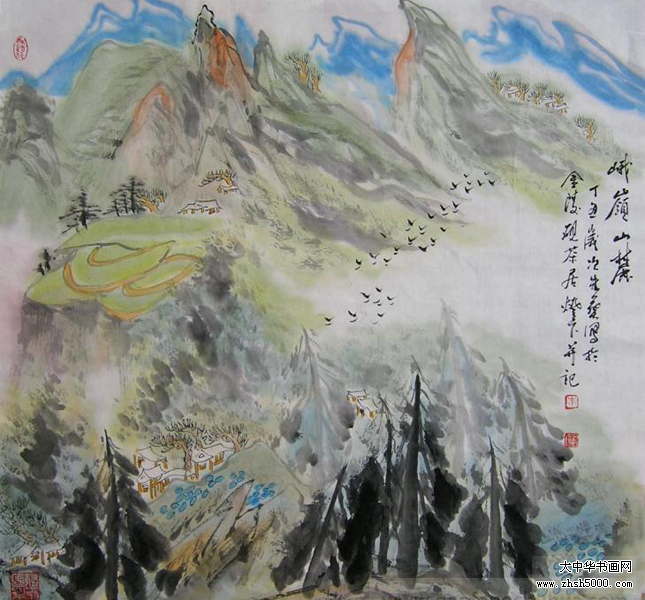 峨嶺山麓
丁丑歲次朱葵寫於
金陵硯茶居燈下并記
大中华书画网
www.zhsh5000.com